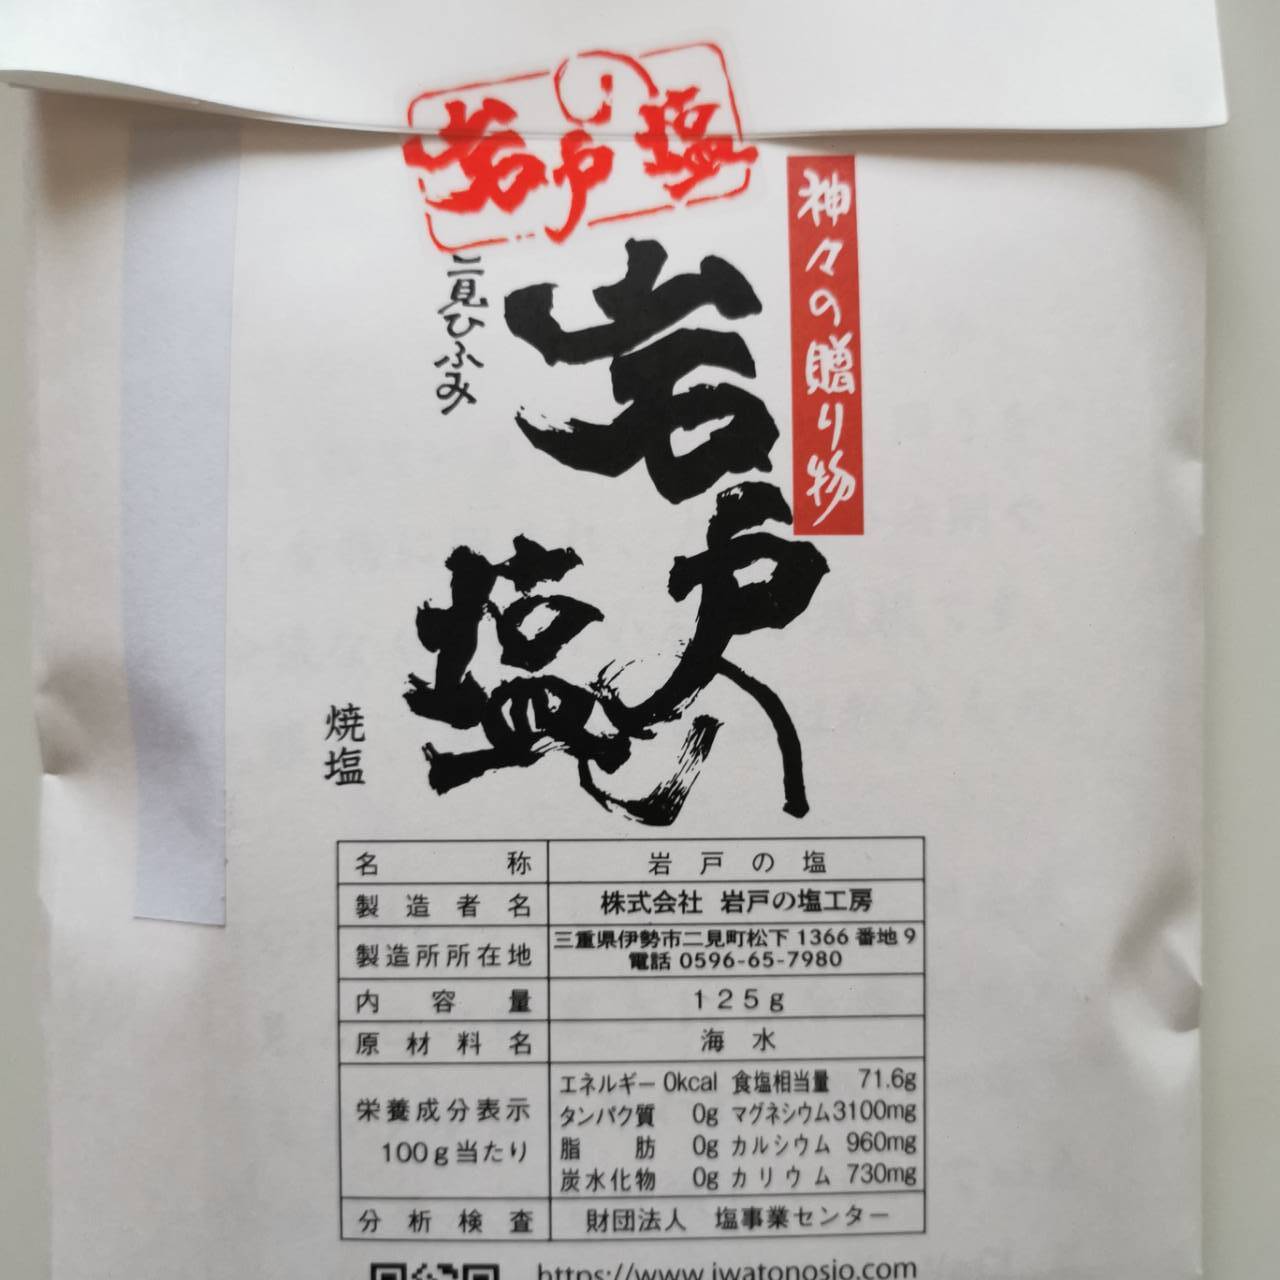 岩戸の塩
神々の贈り物
岩戸の塩
二見ひふみ
焼塩
名称 岩戸の塩
製造者名 株式会社 岩戸の塩工房
製造所所在地 三重県伊勢市二見町松下1366番地9
電話 0596-65-7980
内容量 125g
原材料名 海水
栄養成分表示
100g当たり
エネルギー 0kcal 食塩相当量 71.6g
タンパク質 0g マグネシウム 3100mg
脂肪 0g カルシウム 960mg
炭水化物 0g カリウム 730mg
分析検査 財団法人 塩事業センター
https://www.iwatonosio.com